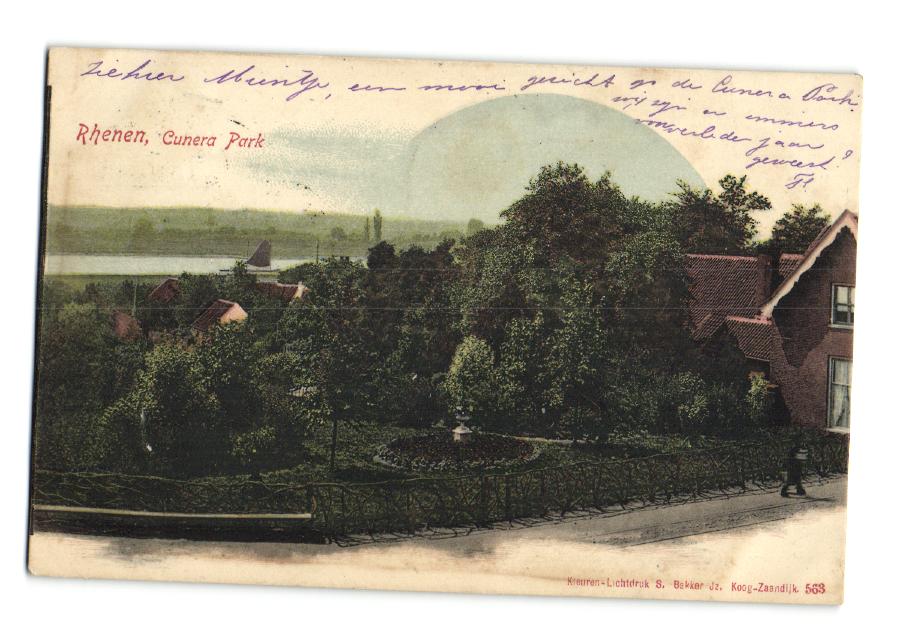 ziehier Meintje, een mooi gezicht op de Cunera Park.
wij zijn er immers
voorverleden jaar
geweest?
Rhenen, Cunera Park
Kleuren-Lichtdruk S. Bakker Jz. Koog-Zaandijk. 563